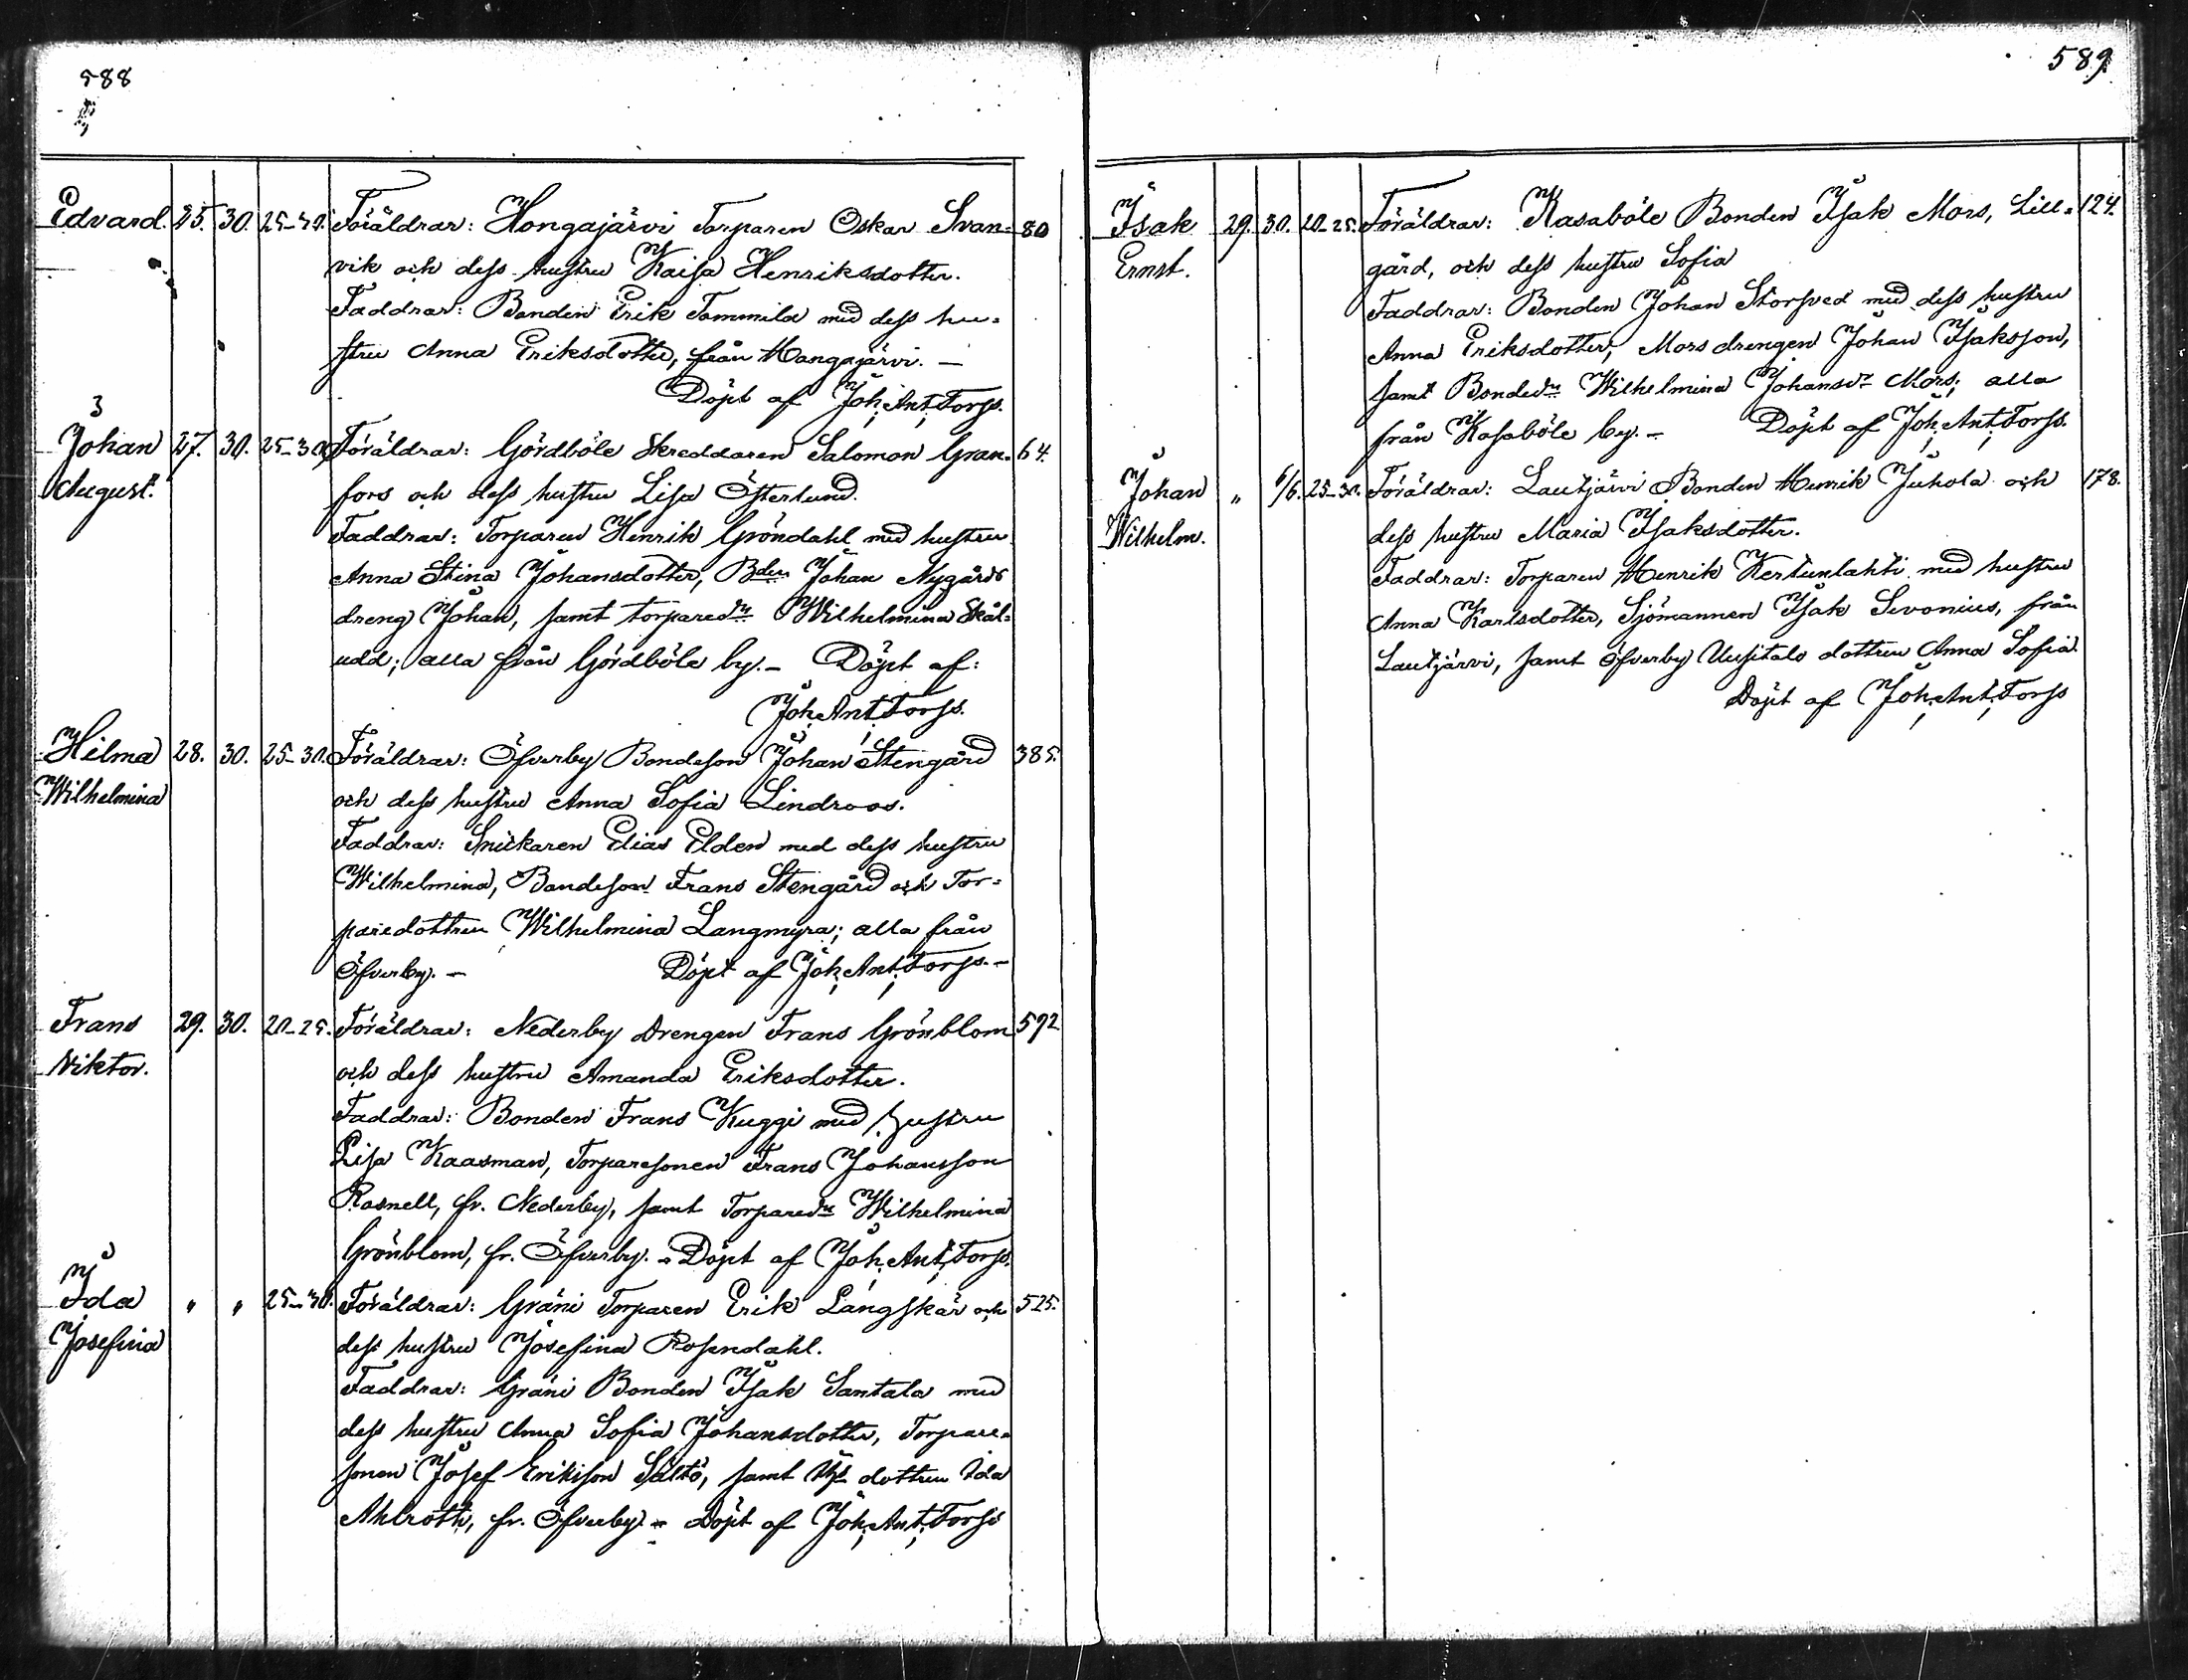 588
Edvard. 25. 30. 25-30. Föräldrar: Hongajärvi Torparen Oskar Svan= 80
vik och dess hustru Kaisa Henriksdotter.
Faddrar: Bonden Erik Tommila med dess hu=
stru Anna Eriksdotter, från Hangajärvi. —
Döpt af Joh. Ant. Forss.
Johan 27. 30. 25-30. Föräldrar: Gördböle Skreddaren Salomon Gran= 64.
August. fors och dess hustru Lisa Österlund.
Faddrar: Torparen Henrik Gröndahl med hustru
Anna Stina Johansdotter, Bden Johan Nygårds
dreng Johan, samt torparedr Wilhelmina Skål=
udd; alla från Gördböle by. — Döpt af:
Joh. Ant. Forss.
Hilma 28. 30. 25-30. Föräldrar: Öfverby Bondeson Johan Stengård 385.
Wilhelmina och dess hustru Anna Sofia Lindroos.
Faddrar: Snickaren Elias Elden med dess hustru
Wilhelmina, Bondeson Frans Stengård och Tor=
paredottren Wilhelmina Langmyra; alla från
Öfverby. — Döpt af Joh. Ant. Forss. —
Frans 29. 30. 20-25. Föräldrar: Nederby Drengen Frans Grönblom 592
Viktor. och dess hustru Amanda Eriksdotter.
Faddrar: Bonden Frans Kuggi med hustru
Lisa Kaasman, Torparesonen Frans Johansson
Rosnell, fr. Nederby, samt Torparedr Wilhelmina
Grönblom, fr. Öfverby. — Döpt af Joh. Ant. Forss.
Ida " " 25-30. Föräldrar: Gräni Torparen Erik Långskär och 525.
Josefina dess hustru Josefina Rosendahl.
Faddrar: Gräni Bonden Isak Santala med
dess hustru Anna Sofia Johansdotter, Torpare=
sonen Josef Eriksson Sältö, samt dottren Ida
Ahlroth, fr. Öfverby. — Döpt af Joh. Ant. Forss
589
Isak 29. 30. 20-25. Föräldrar: Kasaböle Bonden Isak Mors, Lill= 124.
Ernst. gård, och dess hustru Sofia
Faddrar: Bonden Johan Storsved med dess hustru
Anna Eriksdotter, Mors drengen Johan Isaksson,
samt Bondedr Wilhelmina Johansdr Mors; alla
från Kasaböle by. — Döpt af Joh. Ant. Forss.
Johan " 6/6. 25-30. Föräldrar: Lautjärvi Bonden Henrik Juhola och 178.
Wilhelm. dess hustru Maria Isaksdotter.
Faddrar: Torparen Henrik Kertunlahti med hustru
Anna Karlsdotter, Sjömannen Isak Sevonius, från
Lautjärvi, samt Öfverby Uusitalo dottren Anna Sofia.
Döpt af Joh. Ant. Forss